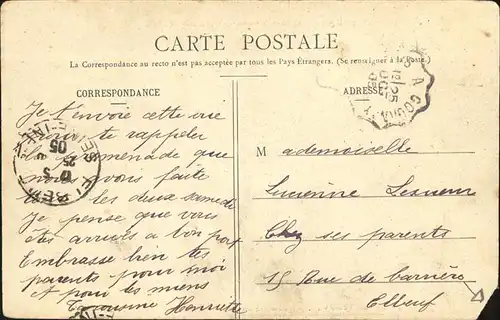 CARTE POSTALE
La Correspondance au recto n'est pas acceptée par tous les Pays Étrangers. (Se renseigner à la Poste.)
CORRESPONDANCE
Je t'envoie cette vue
pour te rappeler
la promenade que
nous avons faite
les deux samedi
Je pense que vous
êtes arrivés a bon port
Embrasse bien tes
parents pour moi
et pour les miens
Ta cousine Henriette
ADRESSE
Mademoiselle
Lucienne Lesueur
Chez ses parents
15 Rue de barrière
Elbeuf
A GOURN
25
05